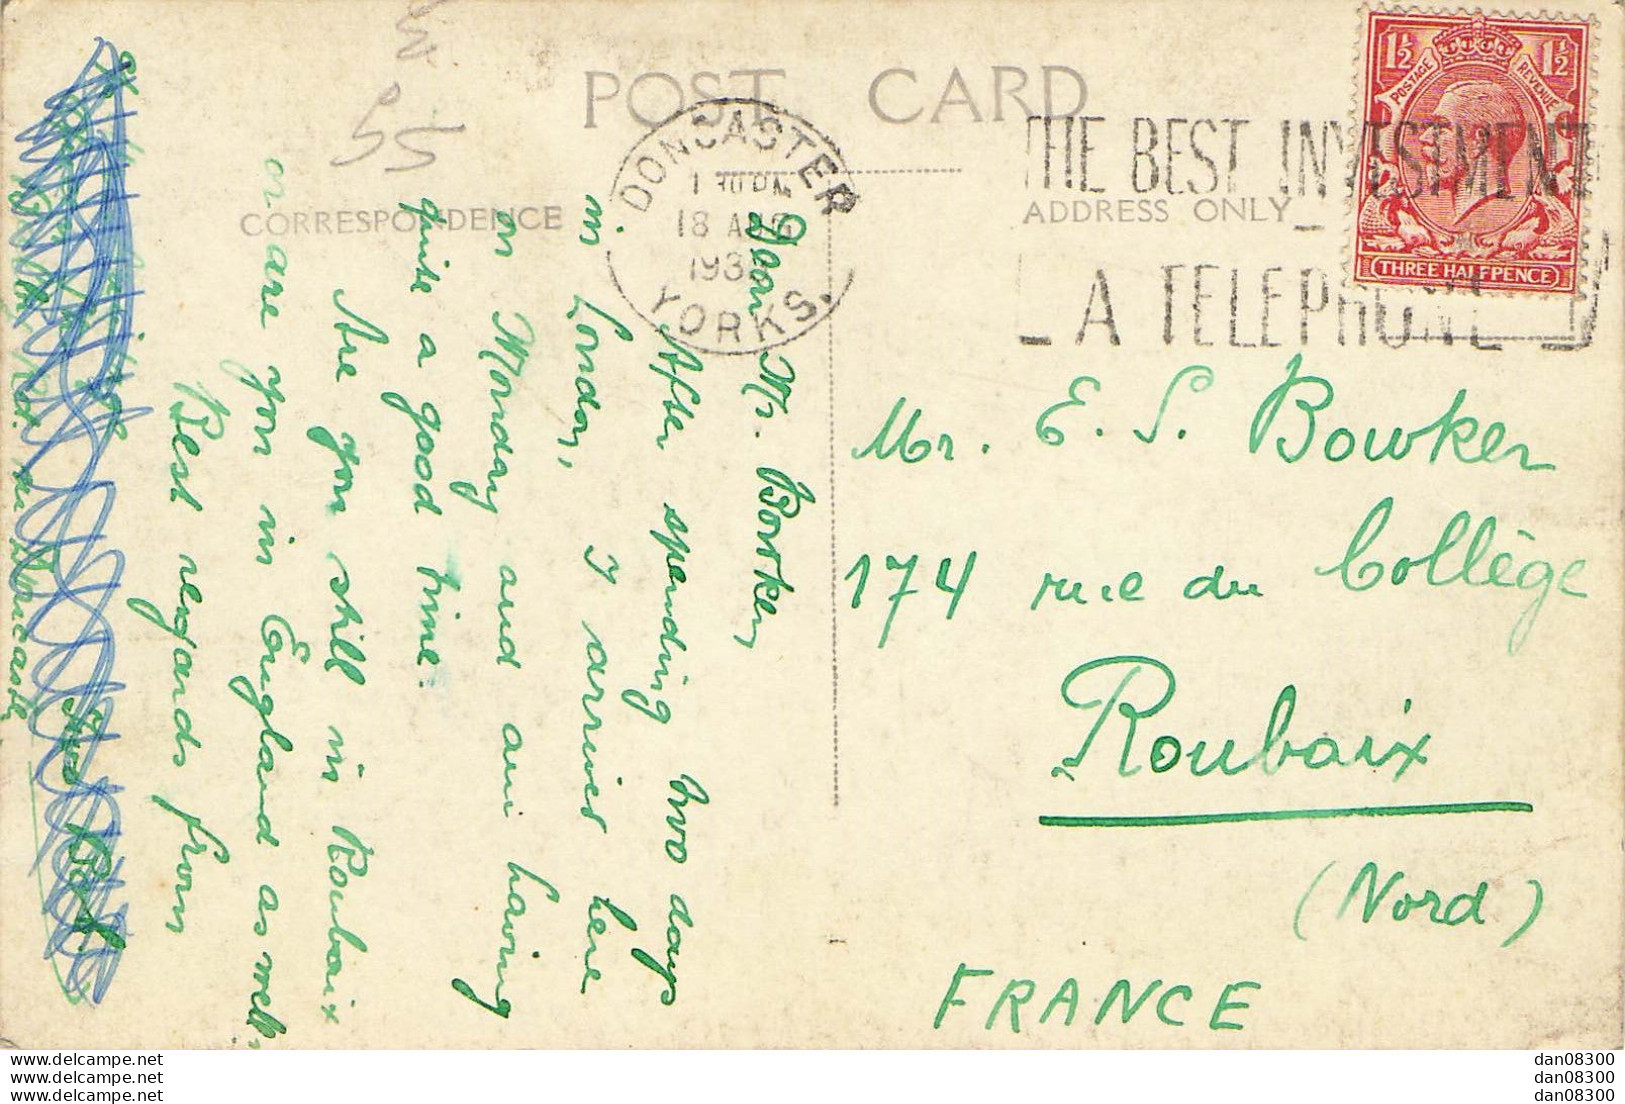 POST CARD
CORRESPONDENCE
ADDRESS ONLY
55
DONCASTER
18 AUG
YORKS.
THE BEST INVESTMENT
A TELEPHONE
1½ 1½
POSTAGE REVENUE
THREE HALFPENCE
Dear Mr. Bowker,
After spending two days
in London, I arrived here
on Monday and am having
quite a good time.
Are you still in Roubaix
or are you in England as well,
Best regards from
Mr. E. S. Bowker
174 rue du Collège
Roubaix
(Nord)
FRANCE
dan08300
dan08300
dan08300
www.delcampe.net
www.delcampe.net
www.delcampe.net